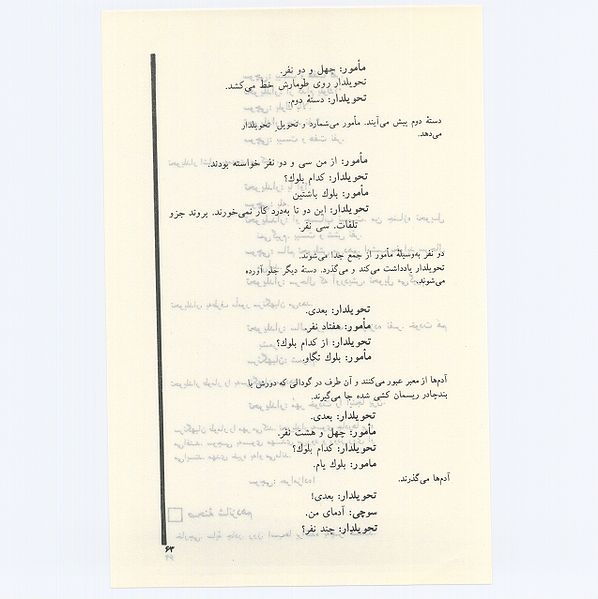 مأمور: چهل و دو نفر.
تحویلدار روی طومارش خط می‌کشد.
تحویلدار: دستهٔ دوم.
دستهٔ دوم پیش می‌آیند. مأمور می‌شمارد و تحویل تحویلدار
می‌دهد.
مأمور: از من سی و دو نفر خواسته بودند.
تحویلدار: کدام بلوک؟
مأمور: بلوک باشتین
تحویلدار: این دو تا به‌درد کار نمی‌خورند. بروند جزو
تلفات. سی نفر.
دو نفر به‌وسیلهٔ مأمور از جمع جدا می‌شوند.
تحویلدار یادداشت می‌کند و می‌گذرد. دستهٔ دیگر جلو آورده
می‌شوند.
تحویلدار: بعدی.
مأمور: هفتاد نفر.
تحویلدار: از کدام بلوک؟
مأمور: بلوک تگاو.
آدم‌ها از معبر عبور می‌کنند و آن طرف در گودالی که دورش با
بندچادر ریسمان کشی شده جا می‌گیرند.
تحویلدار: بعدی.
مأمور: چهل و هشت نفر.
تحویلدار: کدام بلوک؟
مامور: بلوک یام.
آدم‌ها می‌گذرند.
تحویلدار: بعدی!
سوچی: آدمای من.
تحویلدار: چند نفر؟
۶۳